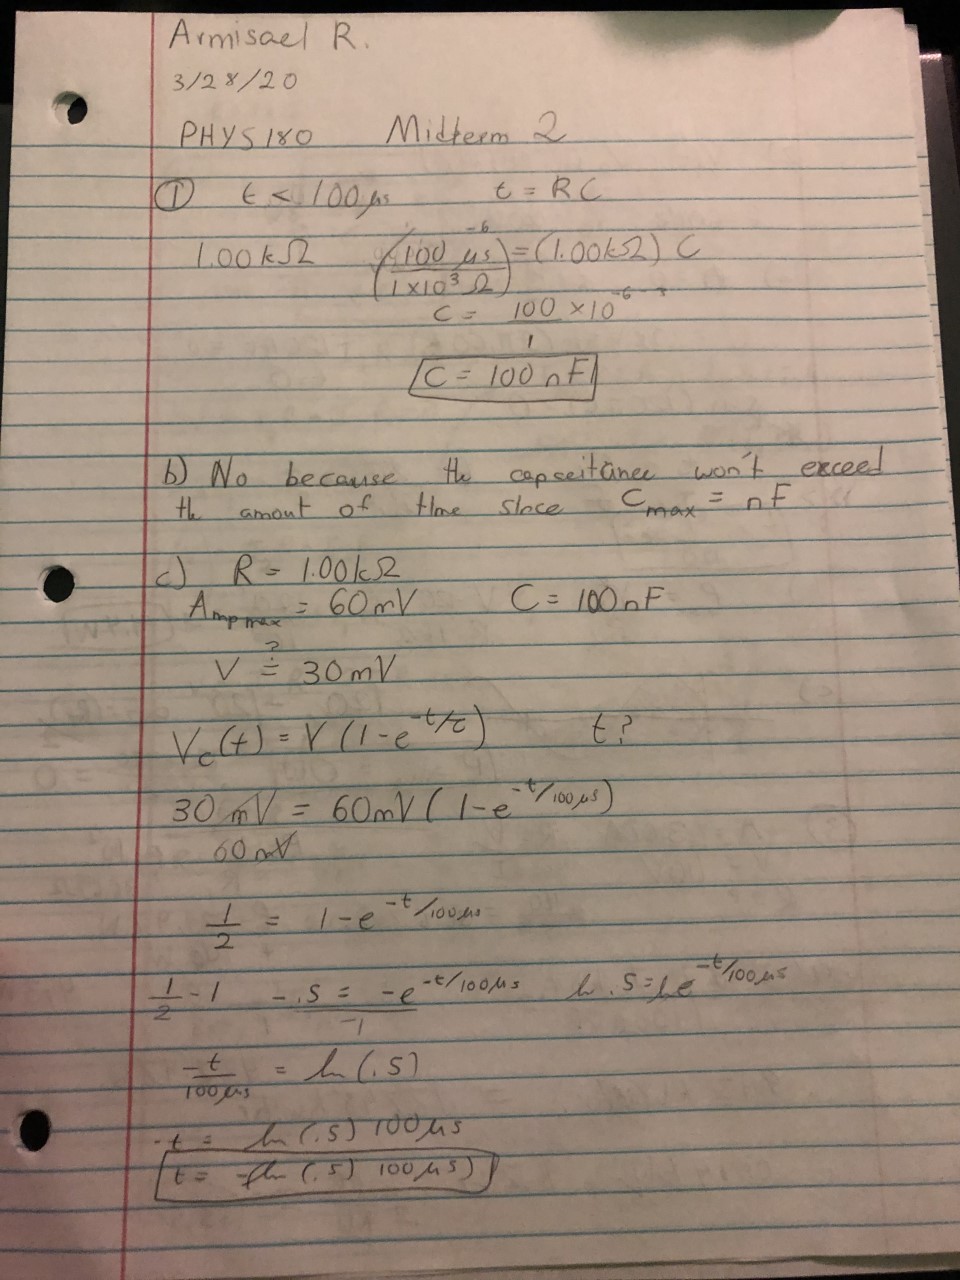 Armisael R.
3/28/20
PHYS 180 Midterm 2
① t < 100 μs t = RC
1.00 kΩ (100 μs⁻⁶ / 1×10³ Ω) = (1.00kΩ) C
C = 100 ×10⁻⁶⁻³ / 1
C = 100 nF
b) No because the capceitance won't exceed
the amout of time since C_max = nF
c) R = 1.00kΩ
Amp max = 60mV C = 100nF
V ≟ 30mV
V_c(t) = V (1-e^-t/τ) t?
30 mV / 60 mV = 60mV (1-e^-t/100μs)
1/2 = 1-e^-t/100μs
1/2 -1 -.5 = -e^-t/100μs / -1 ln .5 = ln e^-t/100μs
-t/100μs = ln (.5)
-t = ln (.5) 100 μs
t = -(ln (.5) 100 μs)